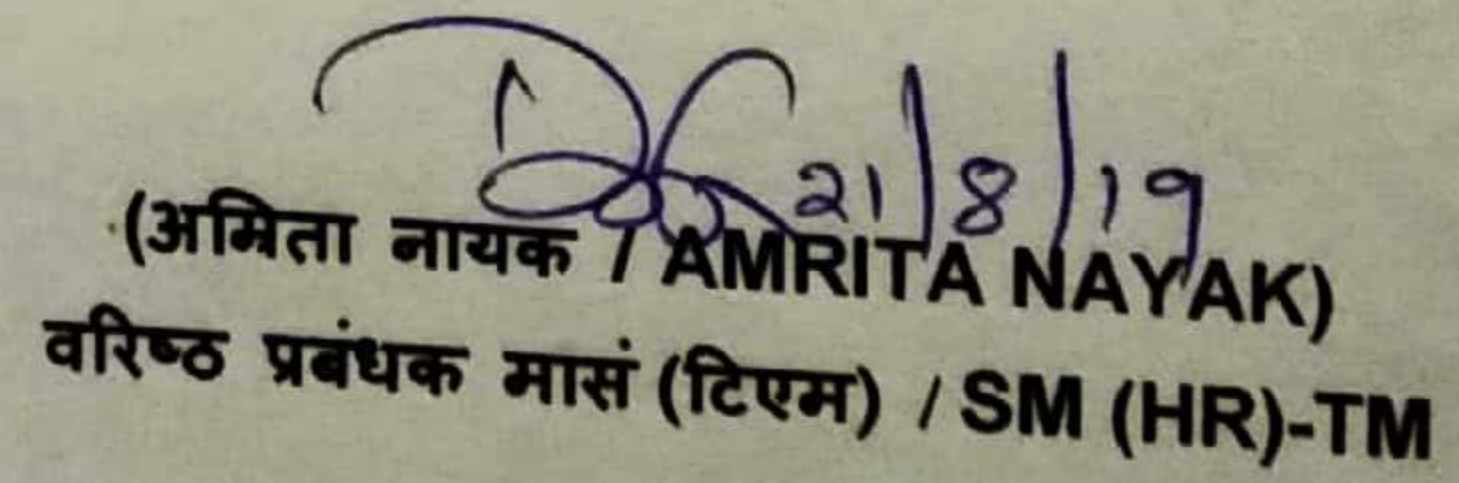 21/8/19
(अम्रिता नायक / AMRITA NAYAK)
वरिष्ठ प्रबंधक मासं (टिएम) / SM (HR)-TM